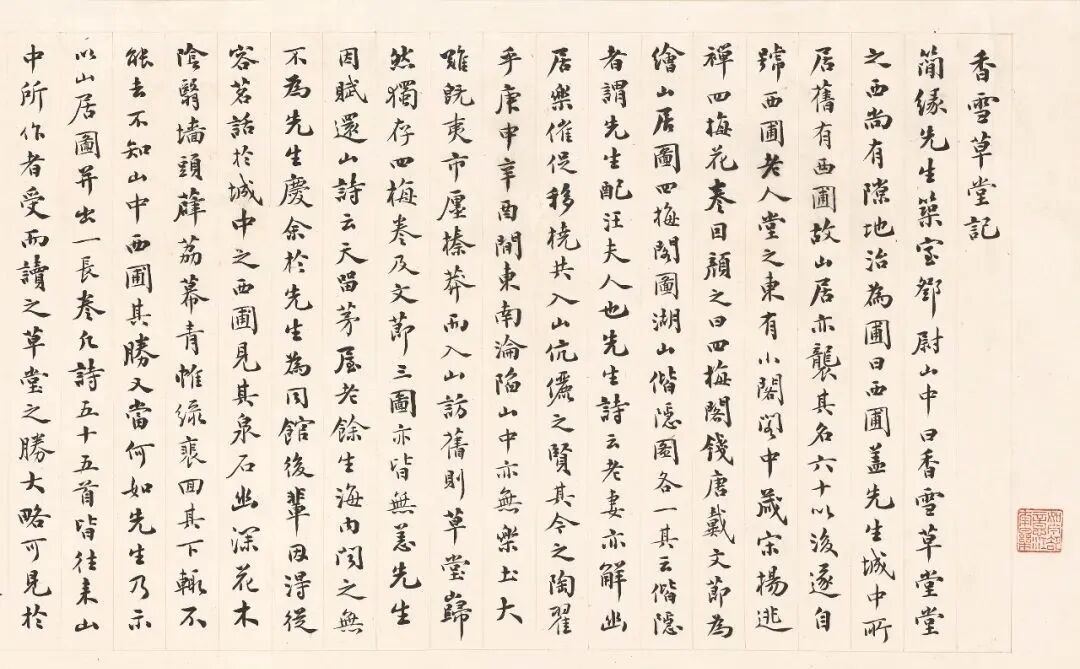 香雪草堂記
簡緣先生築室鄧尉山中曰香雪草堂堂
之西尚有隙地治為圃曰西圃蓋先生城中所
居舊有西圃故山居亦襲其名六十以後遂自
號西圃老人堂之東有小閣閣中藏宋揚逃
禪四梅花卷因顏之曰四梅閣錢唐戴文節為
繪山居圖四梅閣圖湖山偕隱圖各一其云偕隱
者謂先生配汪夫人也先生詩云老妻亦解幽
居樂催促移橈共入山伉儷之賢其今之陶翟
乎庚申辛酉間東南淪陷山中亦無樂土大
難既夷市廛榛莽而入山訪舊則草堂巋
然獨存四梅卷及文節三圖亦皆無恙先生
因賦還山詩云天留茅屋老餘生海內聞之無
不為先生慶余於先生為同館後輩因得從
容茗話於城中之西圃見其泉石幽深花木
陰翳墻頭薜荔幕青帷綠裴回其下輒不
能去不知山中西圃其勝又當何如先生乃示
以山居圖并出一長卷凡詩五十五首皆往来山
中所作者受而讀之草堂之勝大略可見於